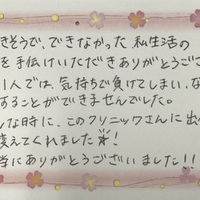 きそうで、できなかった 私生活の
を手伝けいただきありがとうござ
1人では、気持ちで負けてしまい、な
することができませんでした。
んな時に、このクリニックさんに出
変えてくれました!
当にありがとうございました!!